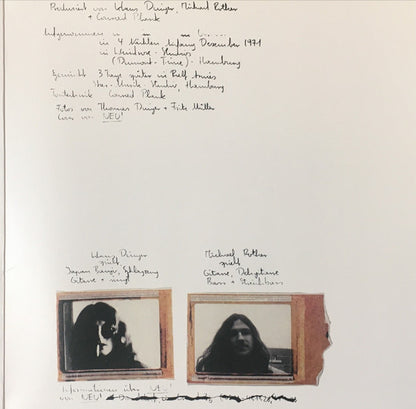 Produziert von Klaus Dinger, Michael Rother
+ Conrad Plank
Aufgenommen
in 4 Nächten Anfang Dezember 1971
in Windrose - Studios
(Dumont - Time) - Hamburg
Gemischt 3 Tage später in
Star - Musik - Studio, Hamburg
Tontechnik Conrad Plank
Fotos von Thomas Dinger + Fritz Müller
Cover von NEU!
Klaus Dinger
spielt
Japan Banjo, Schlagzeug
Gitarre + singt
Michael Rother
spielt
Gitarre, Deliguitare
Bass + Streichbass
Informationen über NEU!
von NEU!